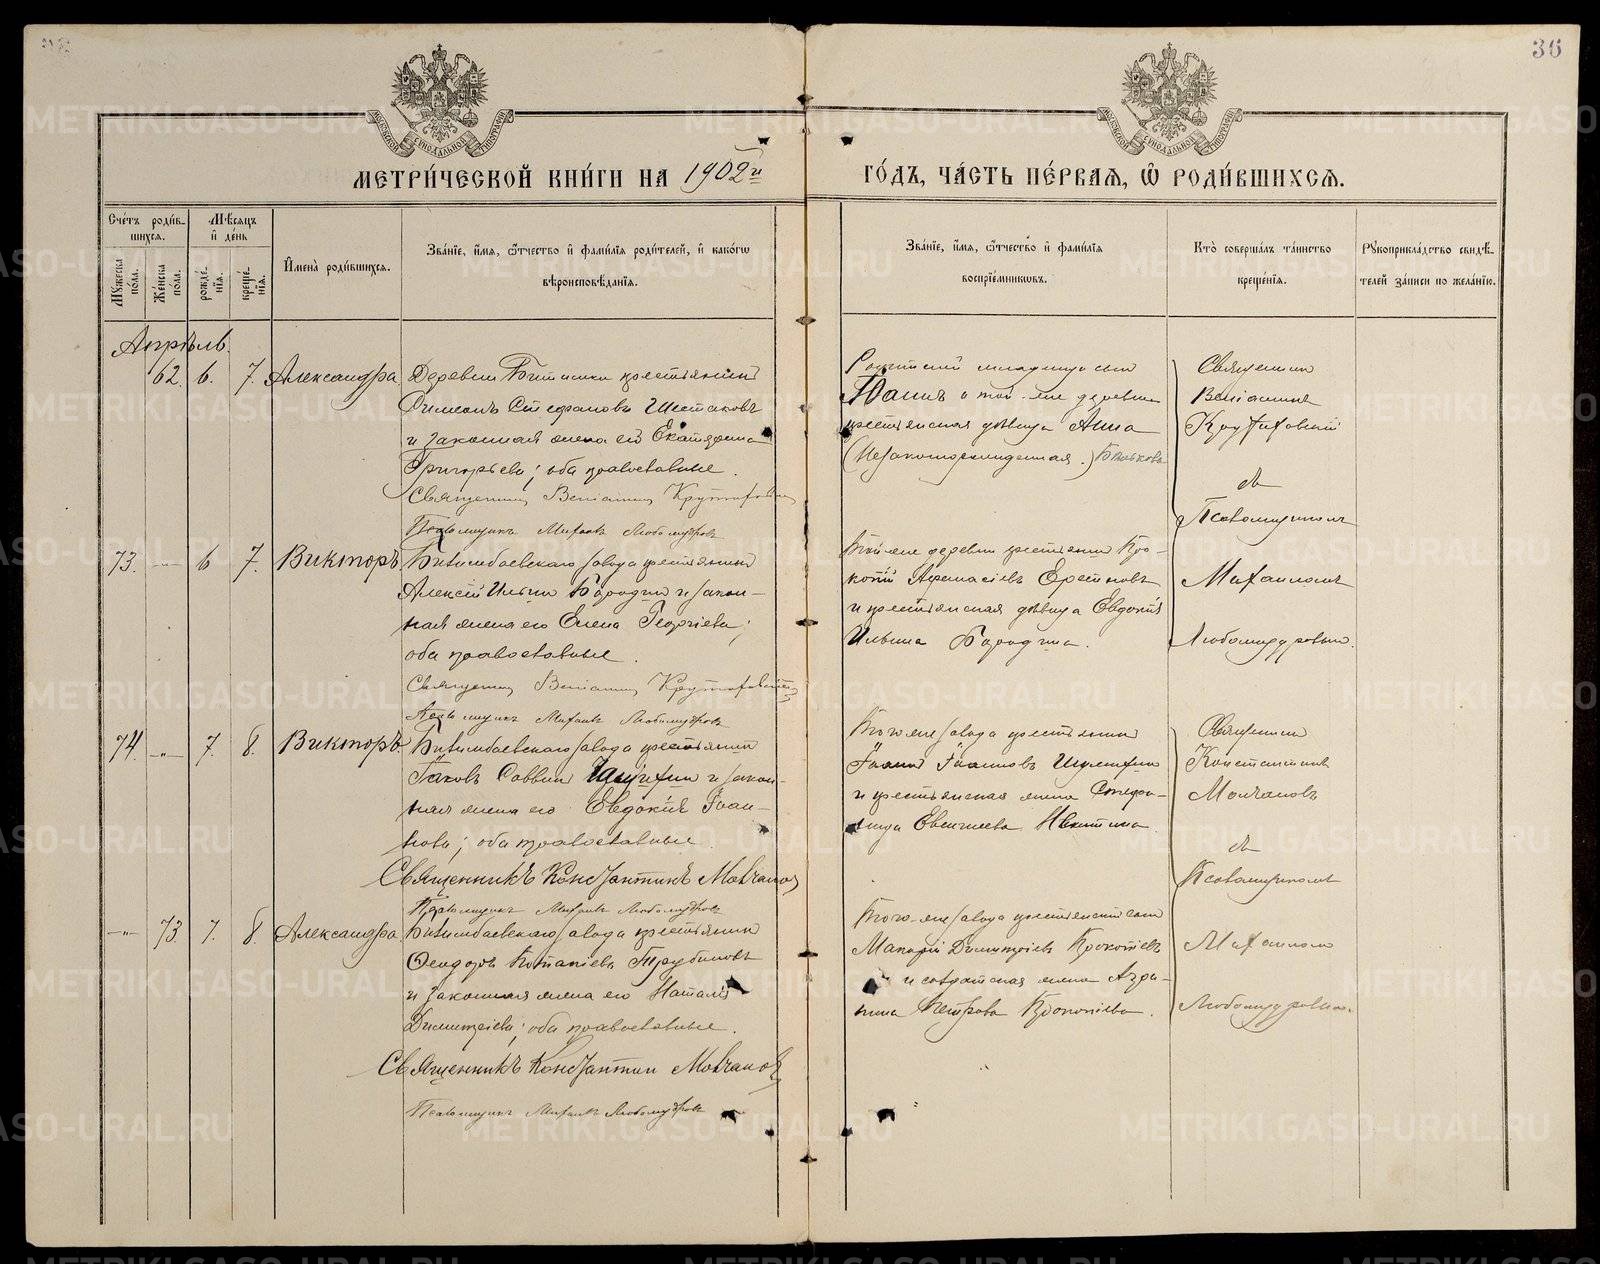 36
МЕТРИ́ЧЕСКОЙ КНИ́ГИ НА 1902й ГО́ДЪ, ЧА́СТЬ ПЕ́РВАЯ, Ѿ РОДИ́ВШИХСЯ.
Сче́тъ роди́в-
шихся.
Му́жеска по́ла.
Же́нска по́ла.
Мѣ́сяцъ
и де́нь
рожде́-
нія.
креще́-
нія.
Имена̀ роди́вшихся.
Зва́ніе, и́мя, ѻ́тчество и фами́лія роди́телей, и како́гѡ
вѣроисповѣ́данія.
Зва́ніе, и́мя, ѻ́тчество и фами́лія
воспріе́мниковъ.
Кто̀ соверша́лъ та́инство
креще́нія.
Рꙋкоприкла́дство свидѣ́-
телей за́писи по жела́нію.
Апрѣль.
62. 6. 7. Александра
Деревни Битимки крестьянинъ
Симеонъ Стефановъ Шестаковъ
и законная жена его Екатерина
Григорьева; оба православные.
Священникъ Веніаминъ
Псаломщикъ Михаилъ Любомудровъ
той же деревни
крестьянская дѣвица Анна
(Незаконорожденная.)
Священникъ
Веніаминъ
съ
Псаломщикомъ
Михаиломъ
Любомудровымъ.
73. —"— 6 7. Викторъ
Билимбаевскаго завода крестьянинъ
Алексій Ильинъ Бородинъ и закон-
ная жена его Елена Георгіева;
оба православные.
Священникъ Веніаминъ
Псаломщикъ Михаилъ Любомудровъ
Той же деревни крестьянинъ Про-
копій Аѳанасіевъ
и крестьянская дѣвица Евдокія
Ильина Бородина.
74. —"— 7. 8. Викторъ.
Билимбаевскаго завода крестьянинъ
Іаковъ Саввинъ и закон-
ная жена его Евдокія Іоан-
нова; оба православные.
Священникъ Константинъ Молчановъ
Псаломщикъ Михаилъ Любомудровъ
Того же завода крестьянинъ
Іоаннъ Іоанновъ
и крестьянская жена Стефа-
нида Евгеніева Никитина
Священникъ
Константинъ
Молчановъ
съ
Псаломщикомъ
Михаиломъ
Любомудровымъ.
—"— 73. 7. 8. Александра
Билимбаевскаго завода крестьянинъ
Ѳеодоръ Потапіевъ Трубиновъ
и законная жена его Наталія
Димитріева; оба православные.
Священникъ Константинъ Молчановъ
Псаломщикъ Михаилъ Любомудровъ
Того же завода крестьянскій сынъ
Макарій Димитріевъ Прокопіевъ
и солдатская жена Агри-
пина Петрова Прокопіева.